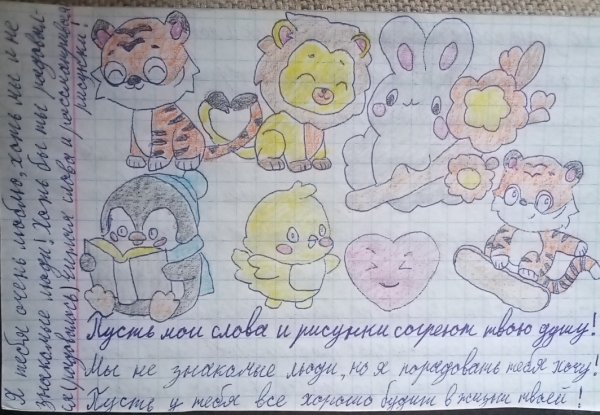 Я тебя очень люблю, хоть мы и не
знакомые люди! Хоть бы ты радовал-
ся (радовалась) читая слова и рассматривая
рисунки!
Пусть мои слова и рисунки согреют твою душу!
Мы не знакомые люди, но я порадовать тебя хочу!
Пусть у тебя все хорошо будит в жизни твоей!